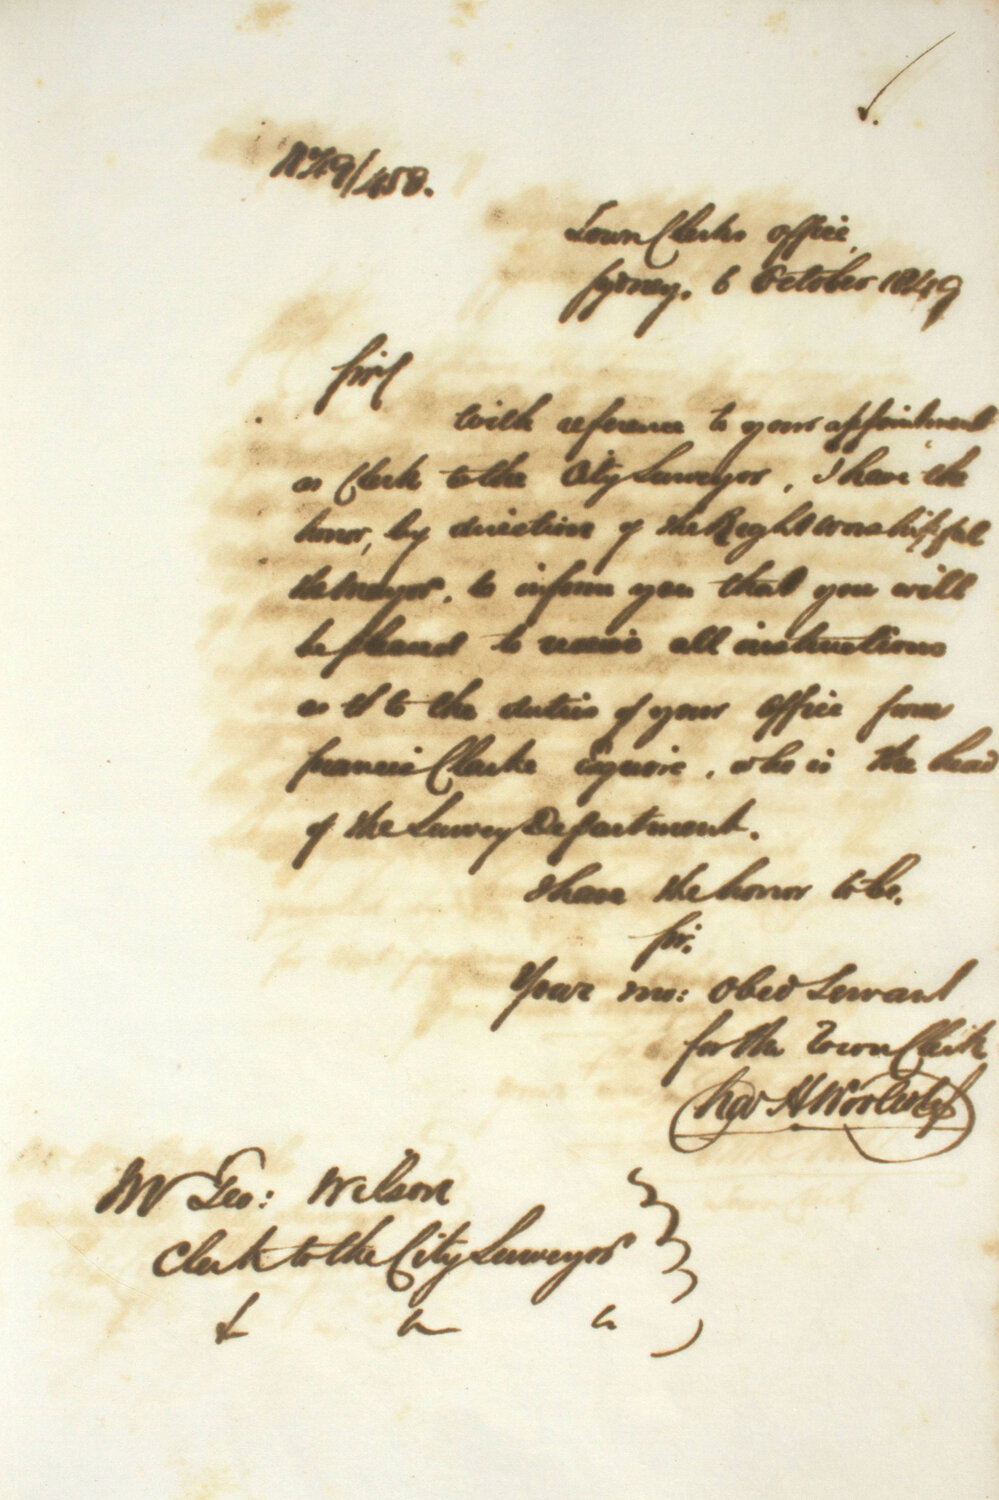 1849/458.
Town Clerks office,
Sydney, 6 October 1849
Sir
With reference to your appointment
as Clerk to the City Surveyor, I have the
honor, by direction of the Right Worshipful
the Mayor, to inform you that you will
be pleased to receive all instructions
as to the duties of your office from
Francis Clarke Esquire, who is the head
of the Survey Department.
I have the honor to be,
Sir,
Your mo: Obed Servant
for the Town Clerk
Chas H Woolcott
Mr Geo: Wilson
Clerk to the City Surveyor